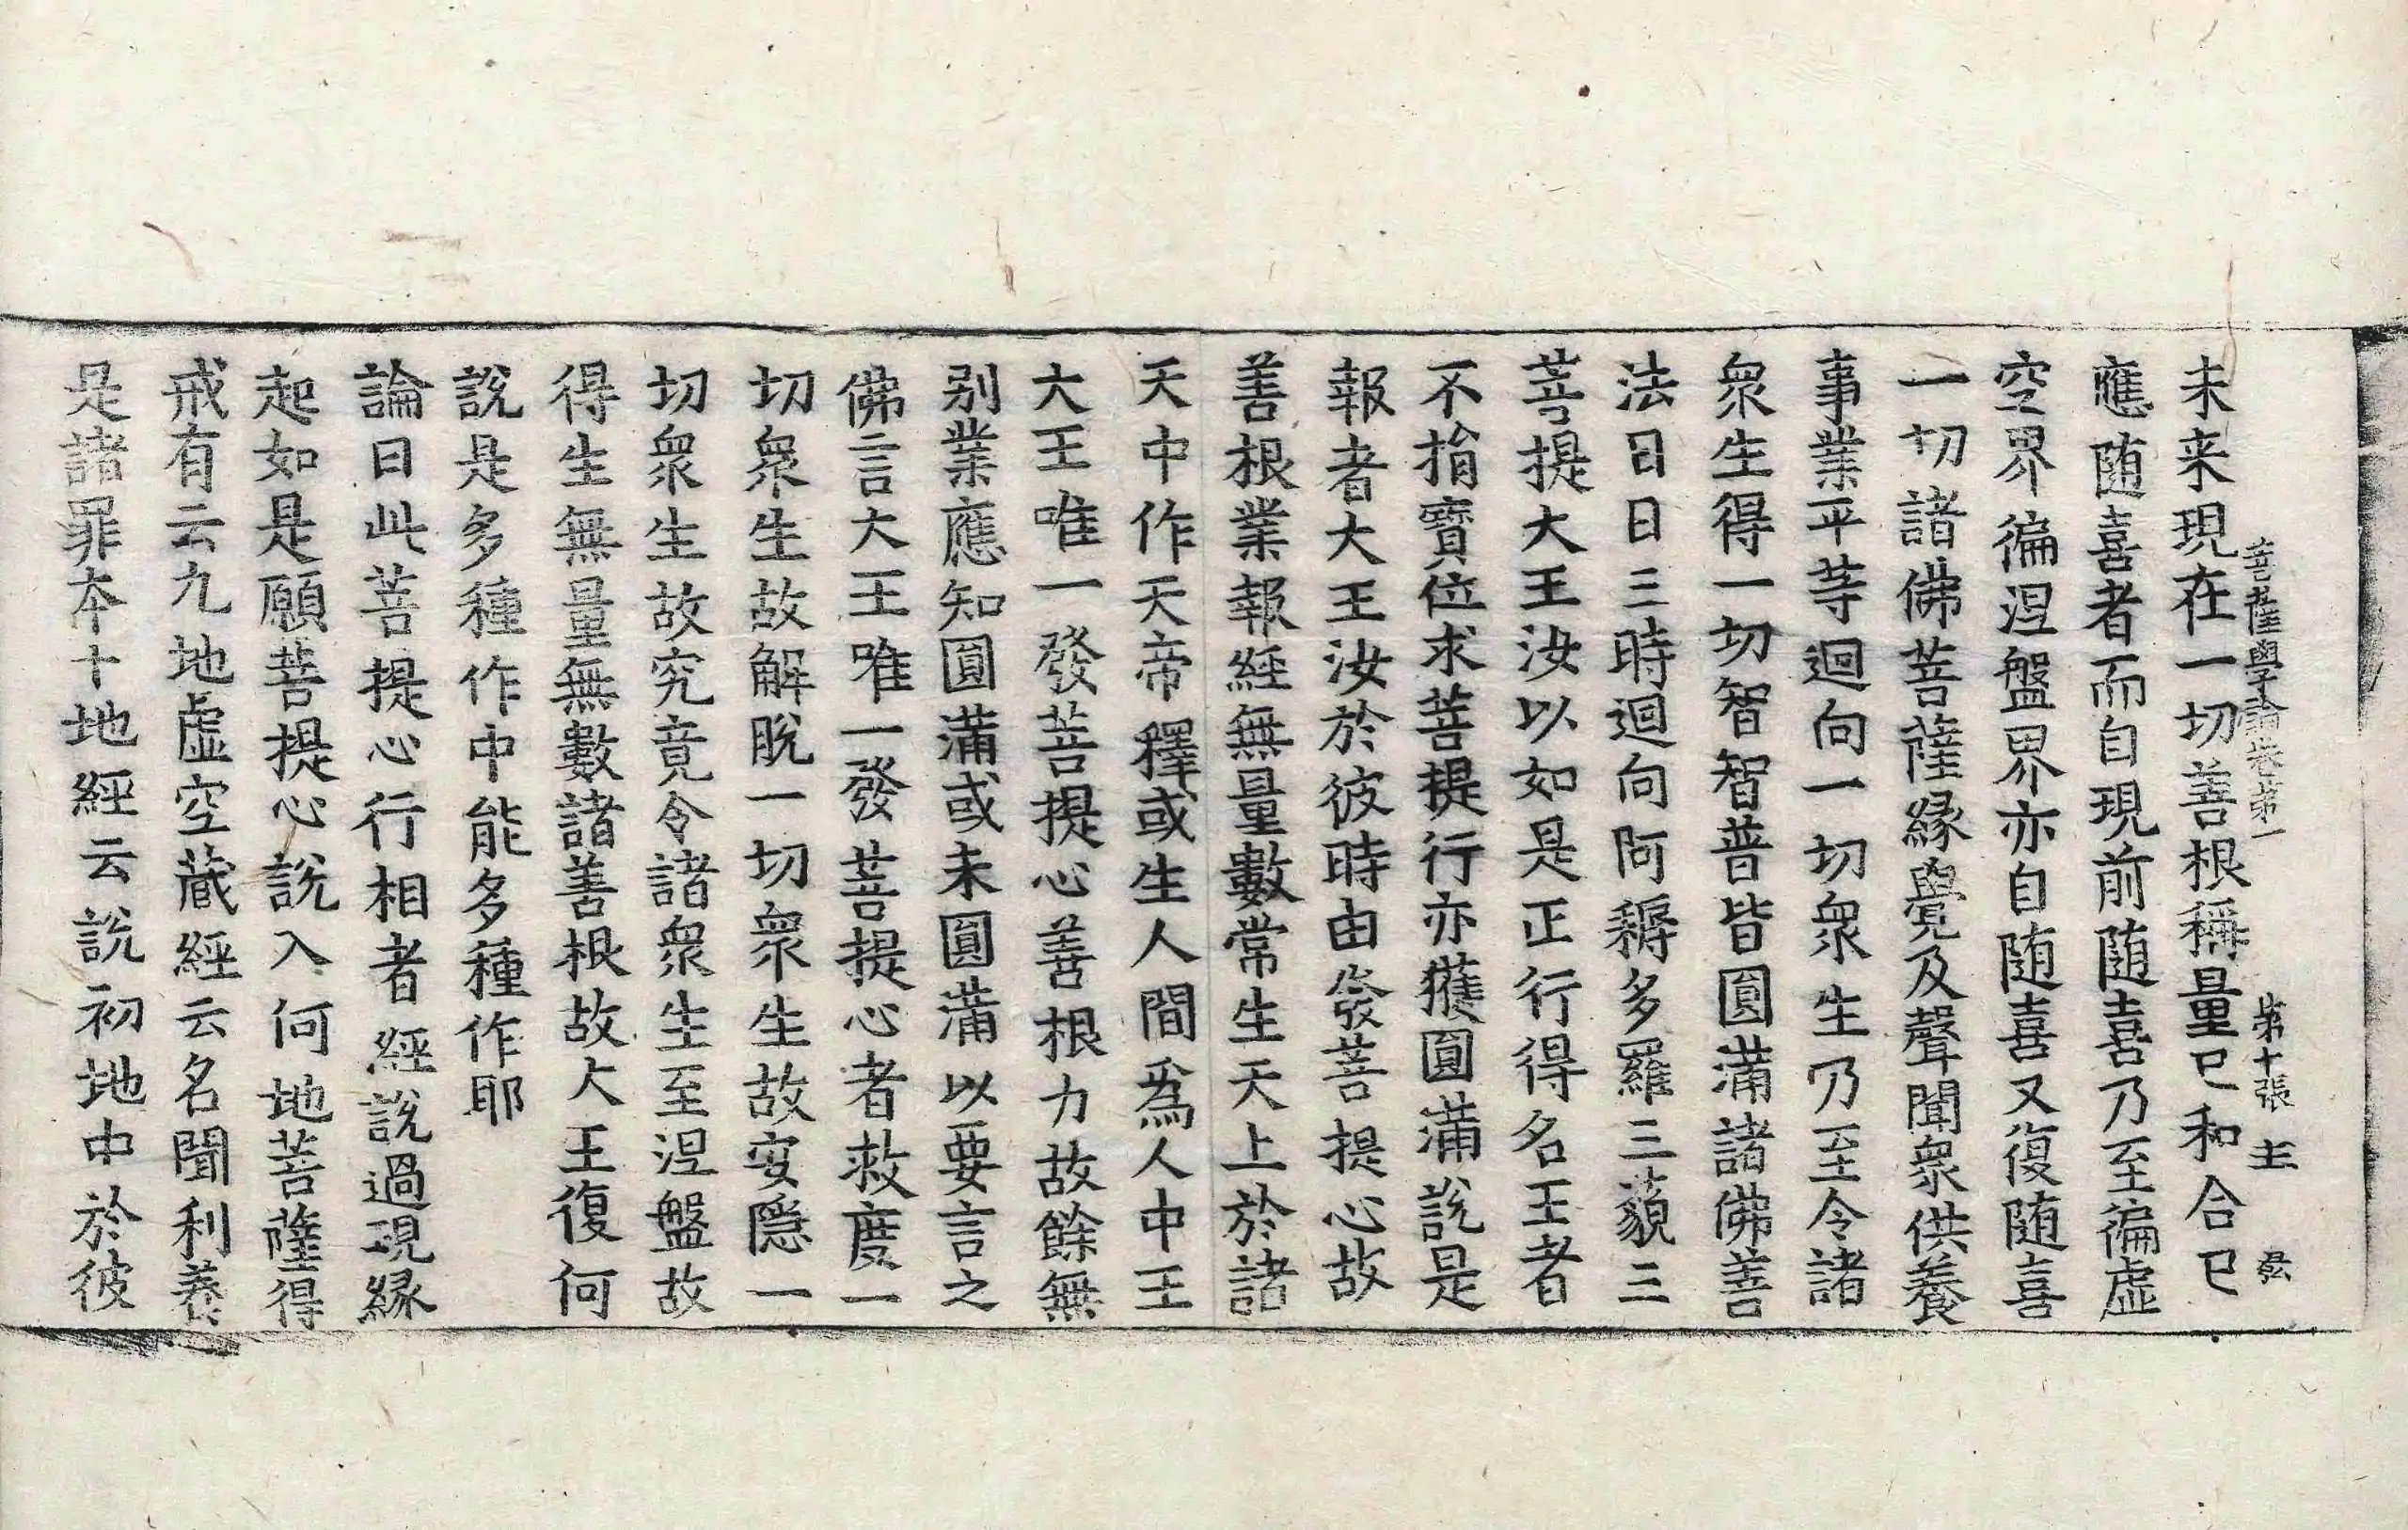 菩薩學論卷第一 第十張 主
未来現在一切善根稱量已和合已
應随喜者而自現前随喜乃至徧虛
空界徧涅盤界亦自随喜又復随喜
一切諸佛菩薩緣覺及聲聞衆供養
事業平等迴向一切衆生乃至令諸
衆生得一切智智普皆圓滿諸佛善
法日日三時迴向阿耨多羅三藐三
菩提大王汝以如是正行得名王者
不捐寶位求菩提行亦獲圓滿說是
報者大王汝於彼時由發菩提心故
善根業報經無量數常生天上於諸
天中作天帝釋或生人間爲人中王
大王唯一發菩提心善根力故餘無
别業應知圓滿或未圓滿以要言之
佛言大王唯一發菩提心者救度一
切衆生故解脫一切衆生故安隱一
切衆生故究竟令諸衆生至涅盤故
得生無量無數諸善根故大王復何
說是多種作中能多種作耶
論曰此菩提心行相者經說過現緣
起如是願菩提心說入何地菩薩得
戒有云九地虛空藏經云名聞利養
是諸罪本十地經云說初地中於彼